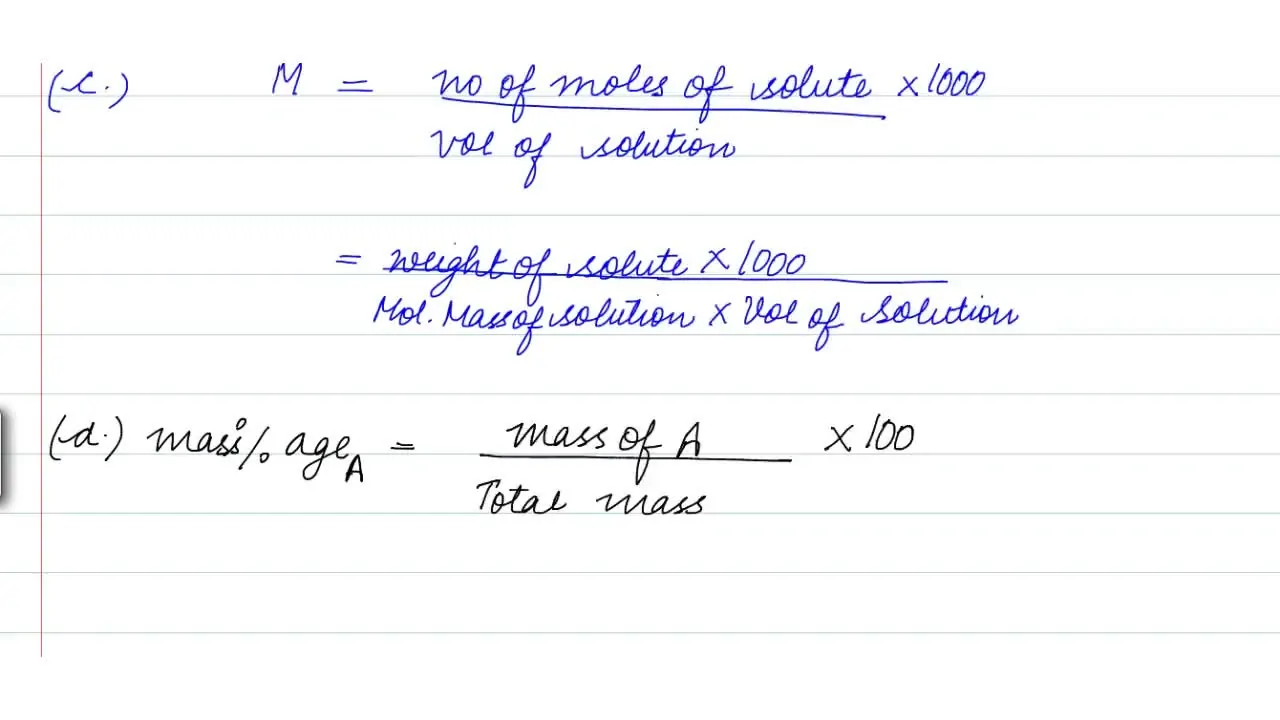 (c.) M = no of moles of solute × 1000
Vol of solution
= weight of solute × 1000
Mol. Mass of solution × Vol of solution
(d.) mass % age A = mass of A × 100
Total mass